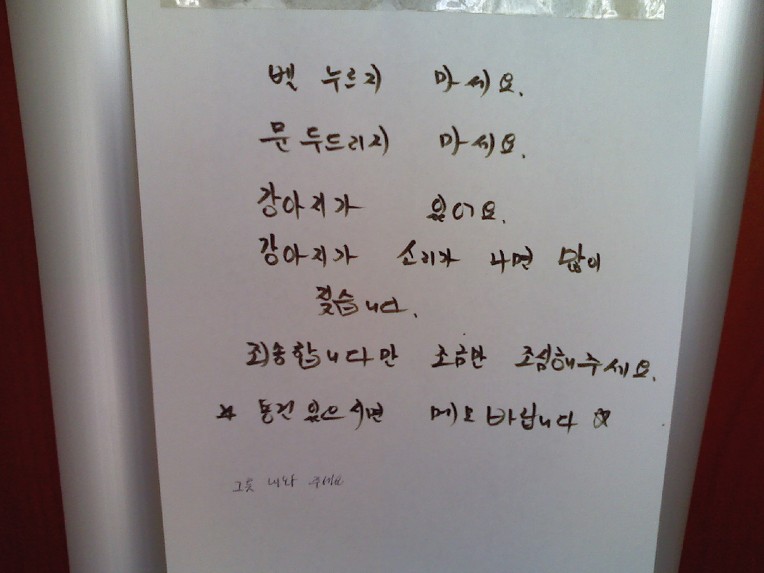 벨 누르지 마세요.
문 두드리지 마세요.
강아지가 있어요.
강아지가 소리가 나면 많이
짖습니다.
죄송합니다만 조금만 조심해주세요.
☆ 용건 있으시면 메모바랍니다 ☆
그릇 내와 주세요